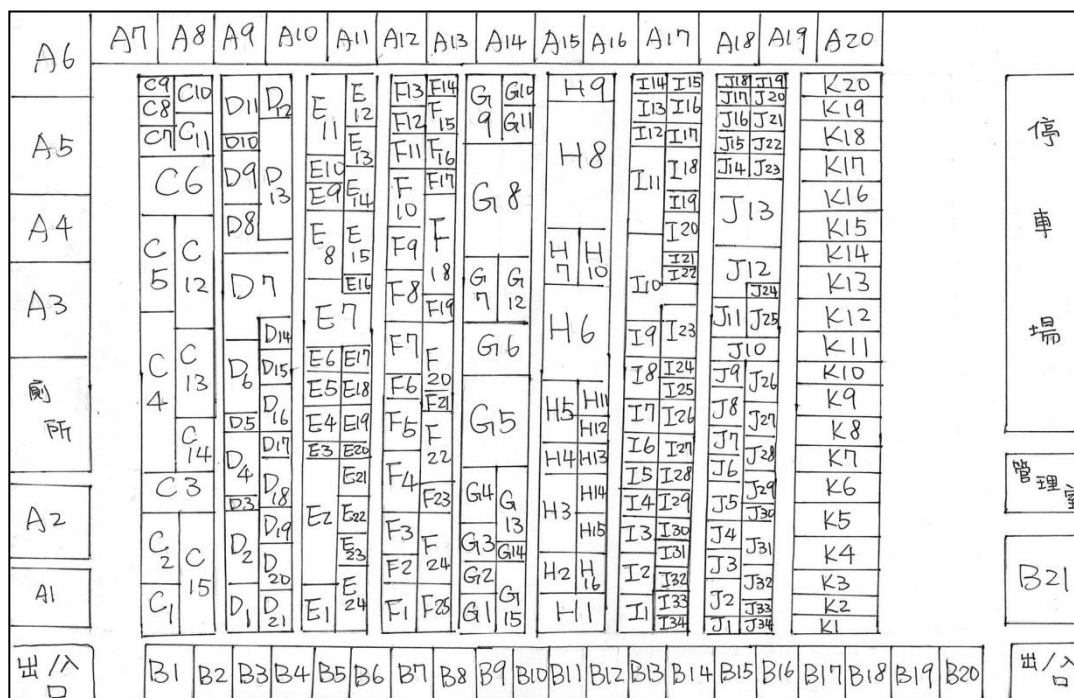 A6
A7 A8 A9 A10 A11 A12 A13 A14 A15 A16 A17 A18 A19 A20
A5
A4
A3
廁所
A2
A1
出/入口
C9 C10
C8
C7 C11
C6
C5 C12
C4 C13
C14
C3
C2 C15
C1
D11 D12
D10
D9 D13
D8
D7
D14
D6 D15
D16
D5 D17
D4 D18
D3
D2 D19
D20
D1 D21
E11 E12
E13
E10 E14
E9
E8 E15
E16
E7
E6 E17
E5 E18
E4 E19
E3 E20
E21
E2 E22
E23
E1 E24
F13 F14
F12 F15
F11 F16
F10 F17
F9 F18
F8 F19
F7 F20
F6 F21
F5 F22
F4 F23
F3 F24
F2
F1 F25
G9 G10
G11
G8
G7 G12
G6
G5
G4 G13
G3 G14
G2 G15
G1
H9
H8
H7 H10
H6
H5 H11
H12
H4 H13
H3 H14
H15
H2 H16
H1
I14 I15
I13 I16
I12 I17
I11 I18
I19
I20
I21
I10 I22
I9 I23
I8 I24
I25
I7 I26
I6 I27
I5 I28
I4 I29
I3 I30
I31
I2 I32
I1 I33
I34
J18 J19
J17 J20
J16 J21
J15 J22
J14 J23
J13
J12
J24
J11 J25
J10
J9 J26
J8 J27
J7 J28
J6
J5 J29
J30
J4 J31
J3
J2 J32
J33
J1 J34
K20
K19
K18
K17
K16
K15
K14
K13
K12
K11
K10
K9
K8
K7
K6
K5
K4
K3
K2
K1
停車場
管理室
B21
出/入口
B1 B2 B3 B4 B5 B6 B7 B8 B9 B10 B11 B12 B13 B14 B15 B16 B17 B18 B19 B20